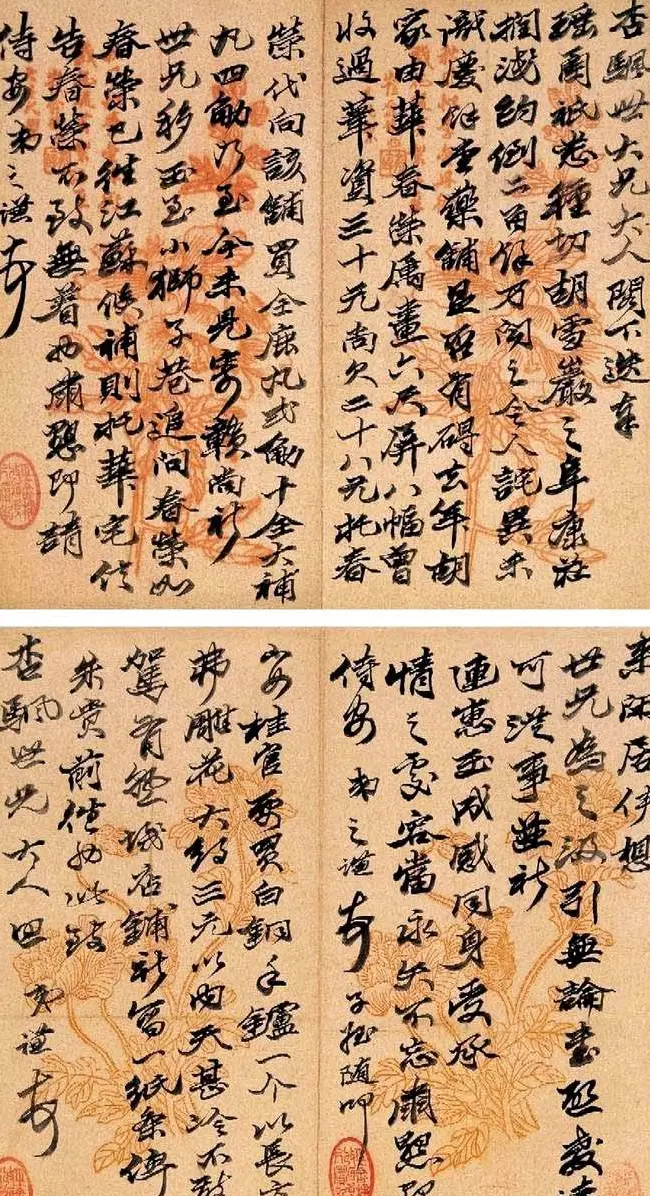 杏颿世大兄大人閣下迭奉
瑤函祇悉種切胡雪巖之阜康莊
擱淺約倒二百餘万聞之令人詫異未
識慶餘堂藥鋪是否有碍去年胡
家由華春榮屬畫六尺屏八幅曾
收過華資三十元尚欠二十八元托春
榮代向該鋪買全鹿丸弍觔十全大補
丸四觔乃至今未見寄贛尚祈
世兄移玉至小獅子巷追問春榮如
春榮已往江蘇候補則托華宅信
告春榮不致無着也肅懇即請
侍安弟之謙頓首
居伊想
世兄為之汲引無論書啓
可從事並祈
速惠玉成感同身受承
情之處容當永矢不忘肅懇即
侍安弟之謙頓首 子 随叩
安桂官要買白銅手鑪一个以長方
弗雕花大約三元以內天甚冷不敢
駕有 店鋪祈寫一紙条俾
朱貴前往也此致
杏颿世兄大人 弟謙頓首